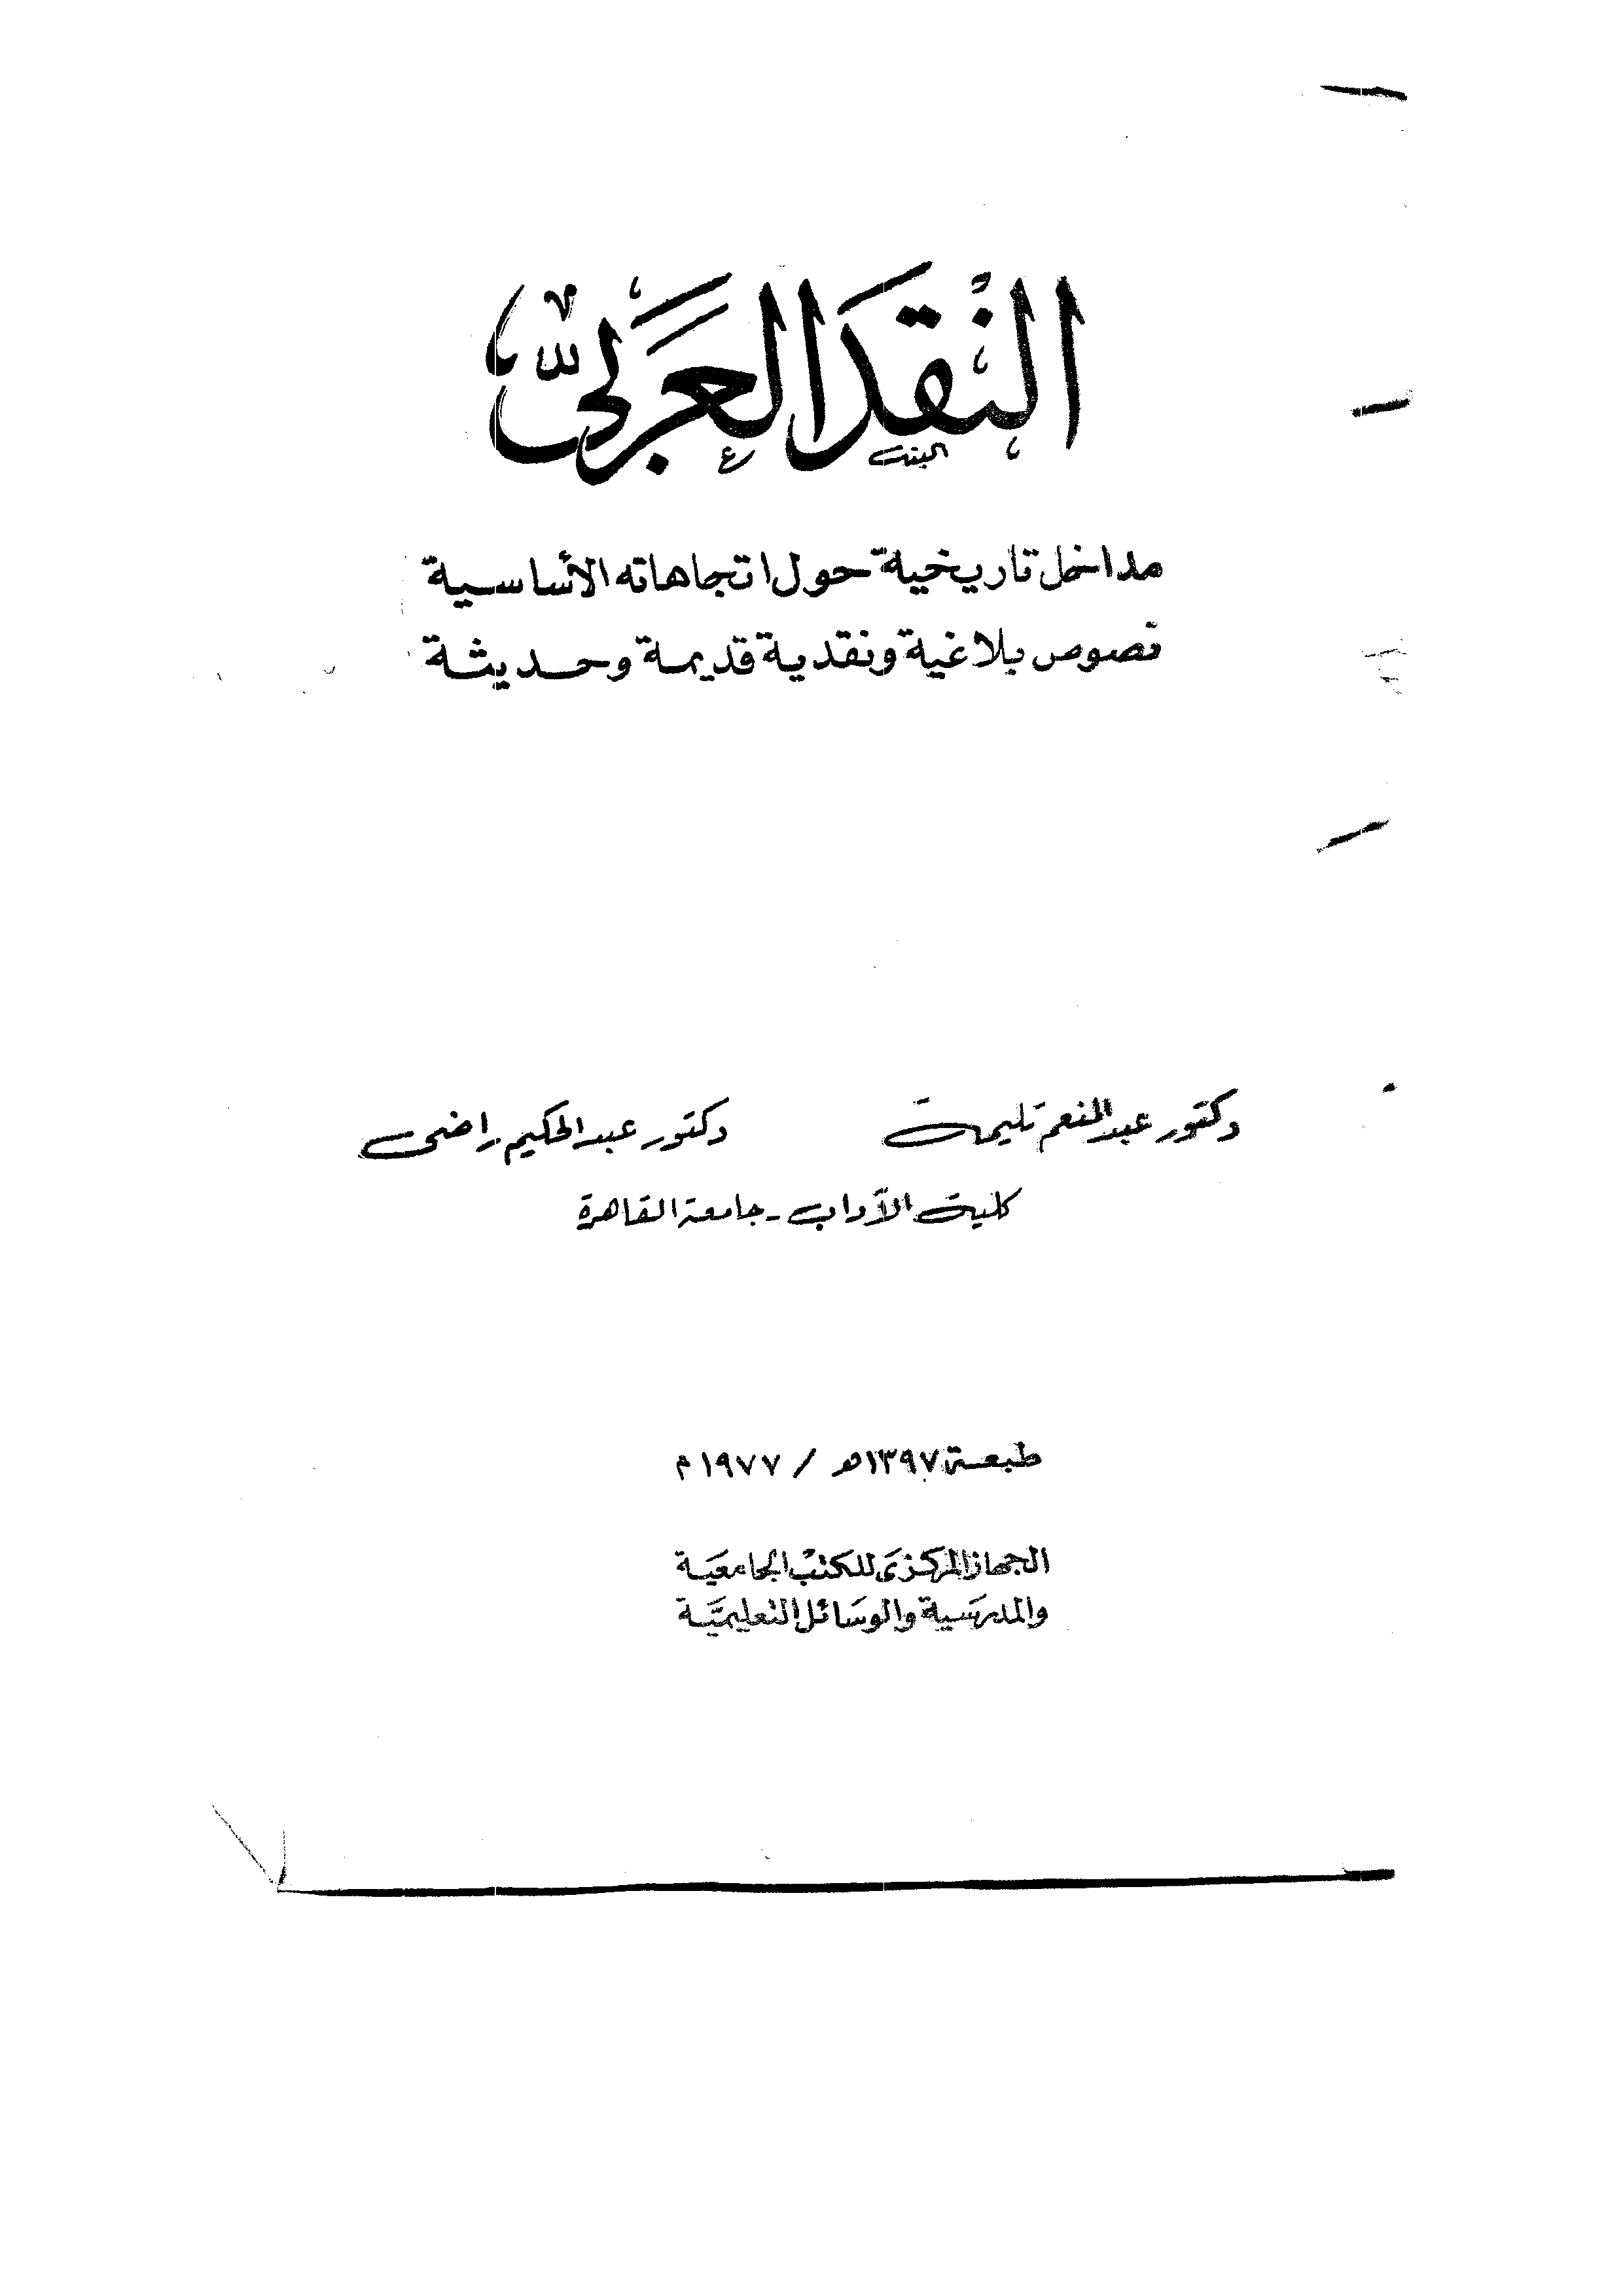 النقد العربي
مداخل تاريخية حول اتجاهاته الأساسية
نصوص بلاغية ونقدية قديمة وحديثة
دكتور عبد المنعم تليمة
دكتور عبد الحكيم راضى
كلية الآداب - جامعة القاهرة
طبعة ١٣٩٧هـ / ١٩٧٧م
الجهاز المركزى للكتب الجامعية
والمدرسية والوسائل التعليمية